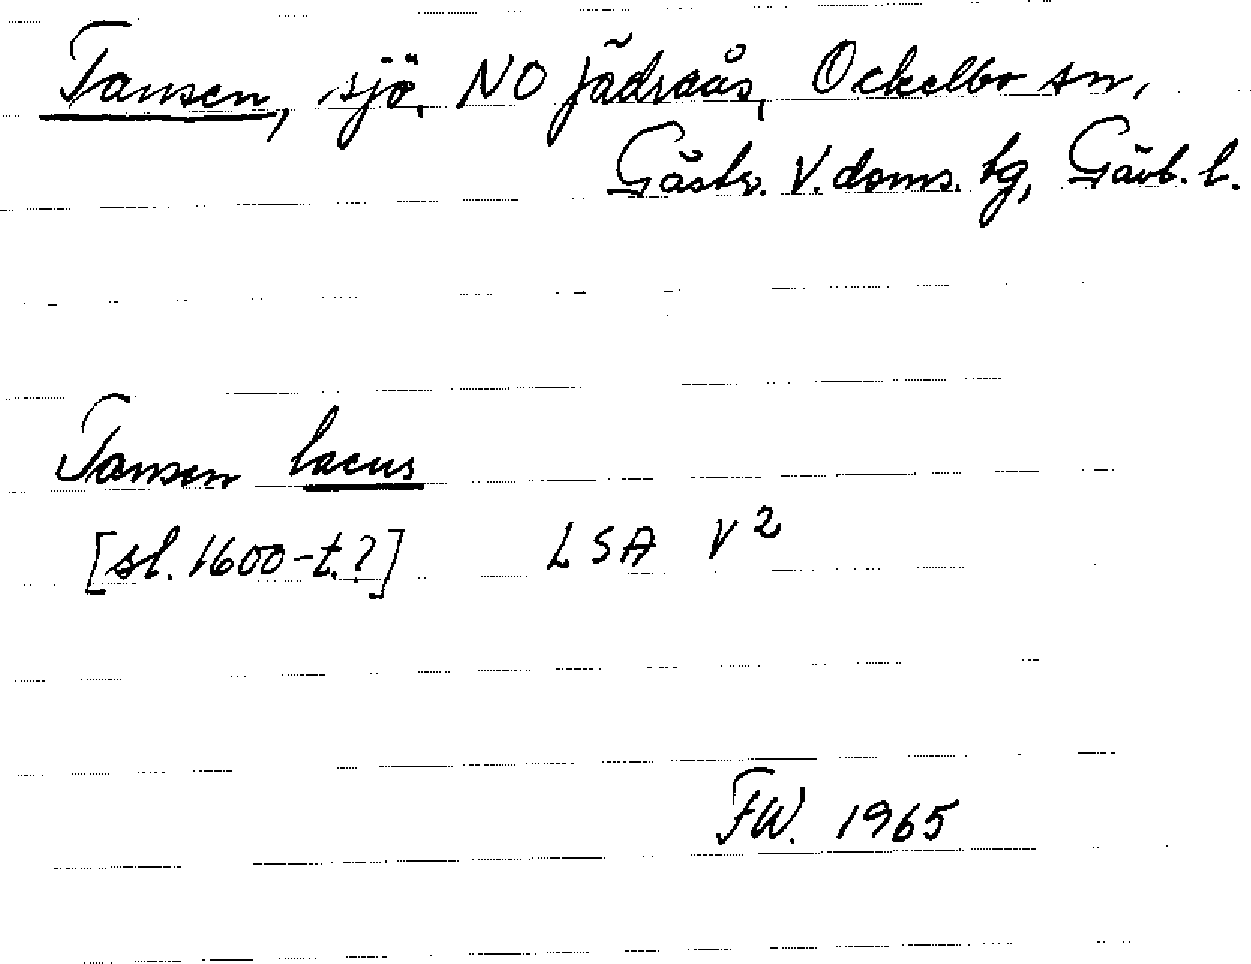 Tansen, sjö, NO Jädraås, Ockelbo sn,
Gästr. V. doms. tg, Gävl. l.
Tansen lacus
[sl. 1600-t.?] LSA V 2
FW. 1965